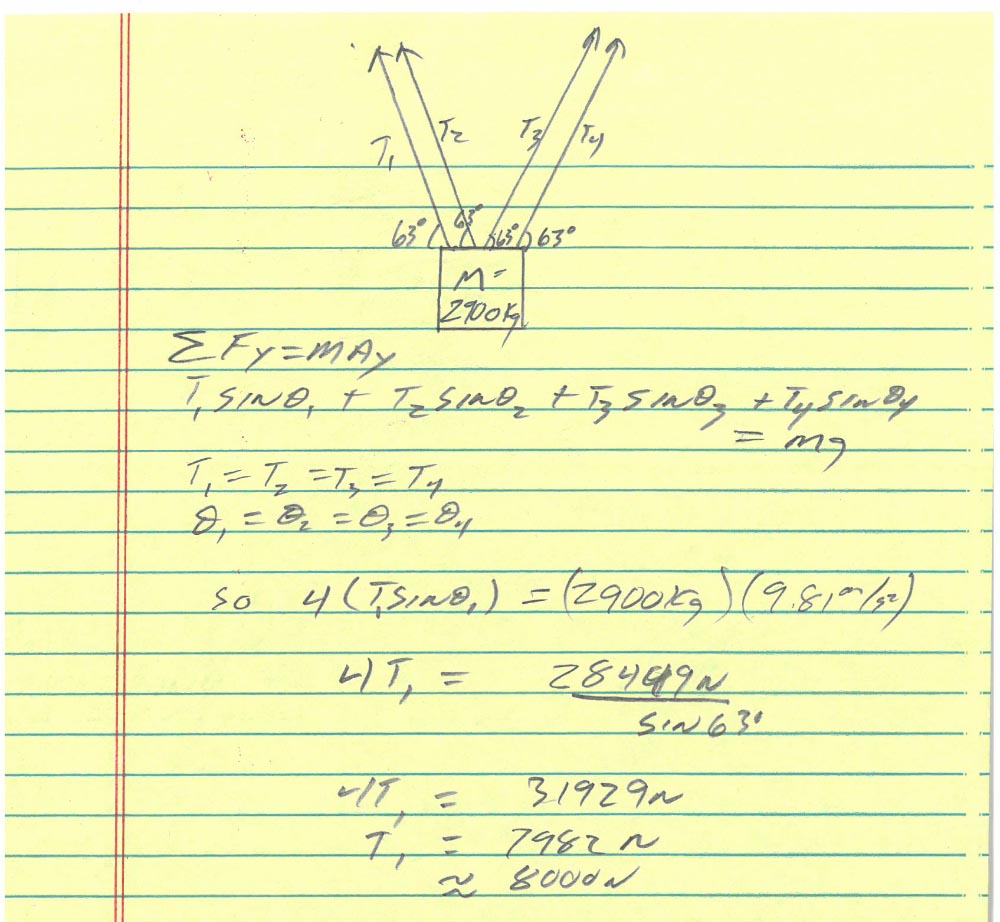 T₁ T₂ T₃ T₄
63° 63° 63° 63°
M =
2900kg
ΣFy=mAy
T₁sinθ₁ + T₂sinθ₂ + T₃sinθ₃ + T₄sinθ₄
= mg
T₁ = T₂ = T₃ = T₄
θ₁ = θ₂ = θ₃ = θ₄
so 4(T₁sinθ₁) = (2900kg)(9.81m/s²)
4T₁ = 28449N
sin63°
4T₁ = 31929N
T₁ = 7982N
≈ 8000N